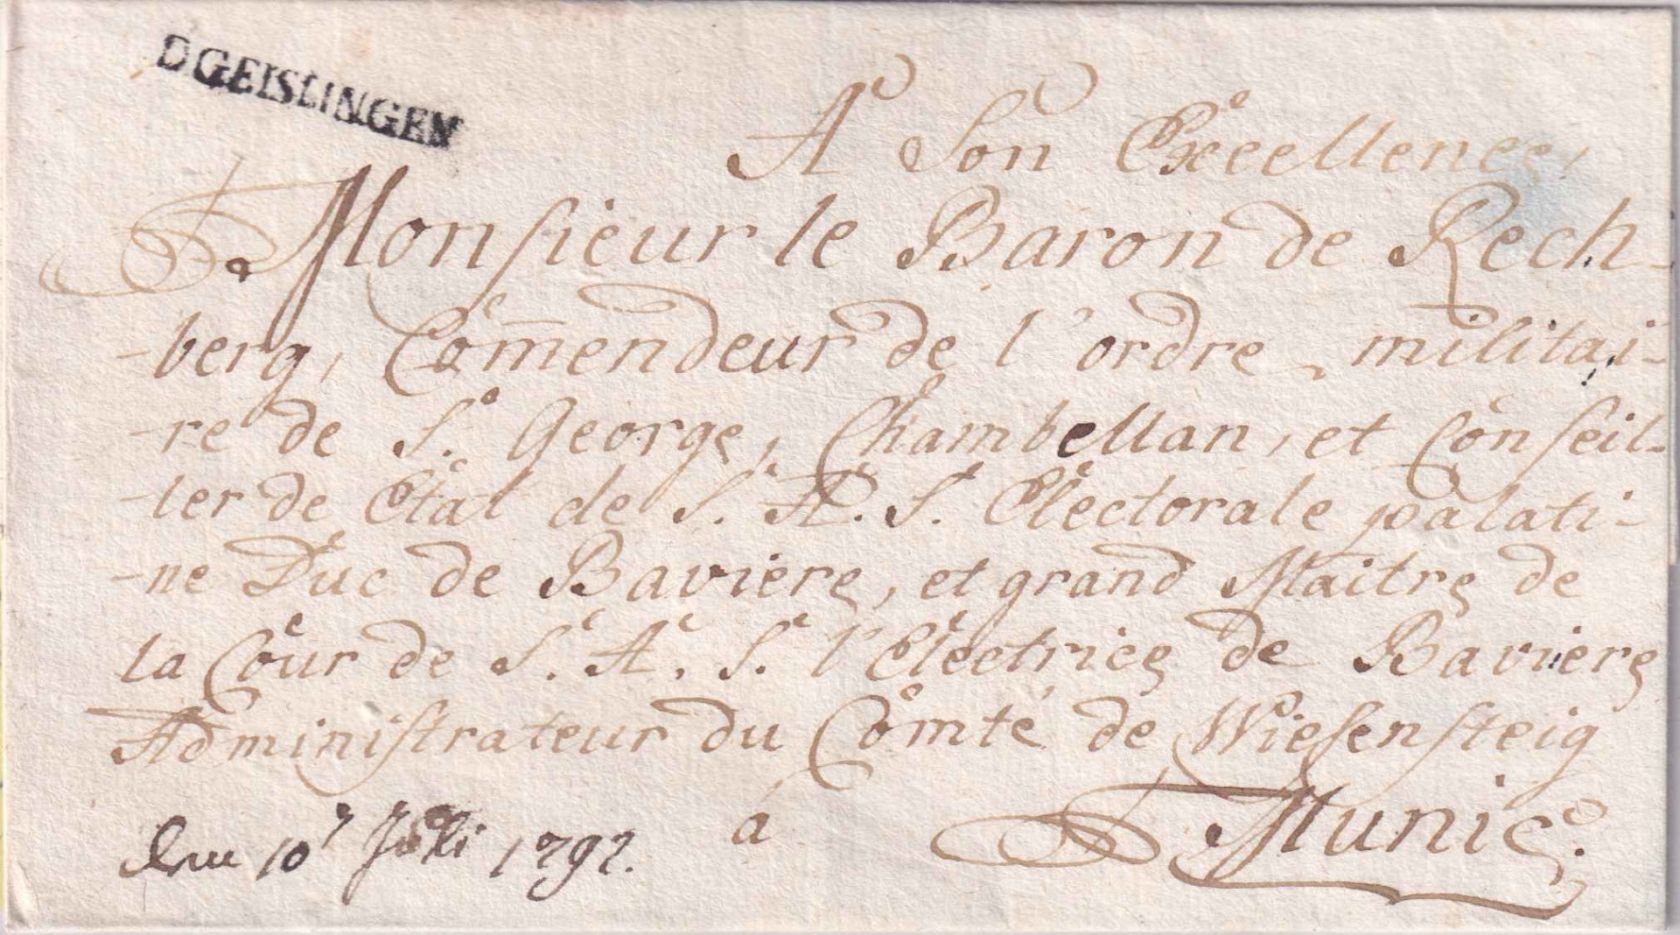 D GEISLINGEN
A Son Excellence,
Monsieur le Baron de Rech-
-berg, Com̄endeur de l'ordre militai-
-re de S.^t George, Chambellan, et Conseil-
-ler de Etat de S. A. S. Electorale palati-
-ne Duc de Baviere, et grand Maitre de
la Cour de S. A. S. l'Electrice de Baviere
Administrateur du Comté de Wiesensteig
à Munic.
10 Juli 1792.